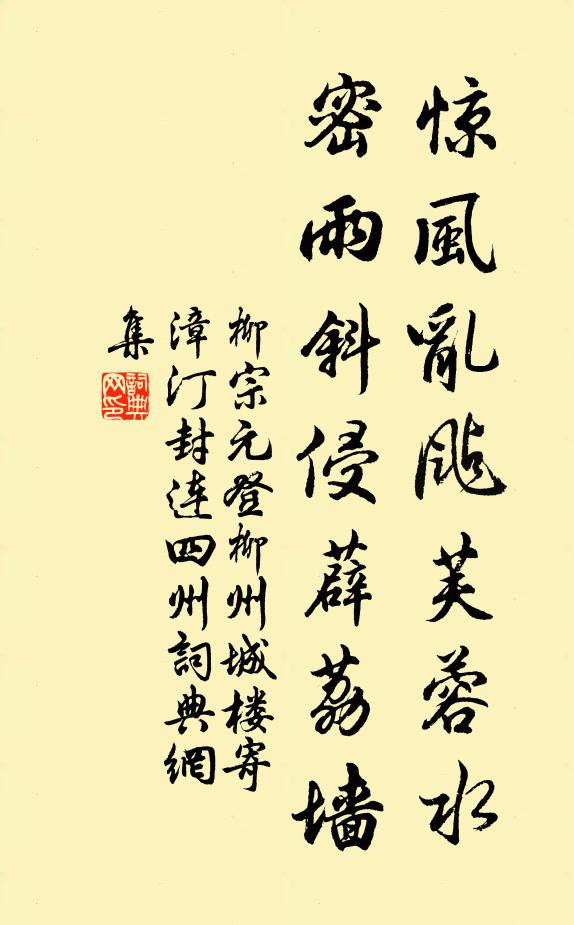 惊風亂飐芙蓉水
密雨斜侵薜荔墙
柳宗元登柳州城楼寄
漳汀封连四州詞典網
集
詞典
网印